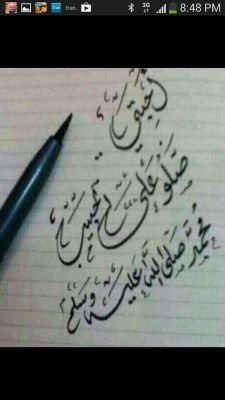 true.
3G
8:48 PM
أحبتي ..
صلوا على الحبيب
محمد صلى الله عليه وسلم